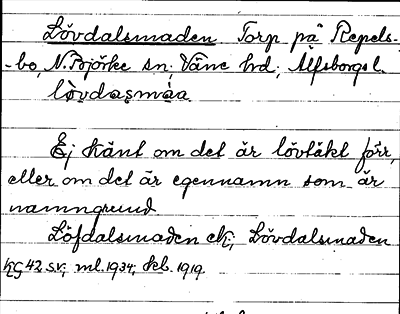 Lövdalsmaden Torp på Repels-
-bo, N. Björke sn, Väne hd, Älfsborgs l.
lo̱vdasmàa.
Ej känt om det är lövtäkt förr,
eller om det är egennamn som är
namngrund.
Löfdalsmaden ek; Lövdalsmaden
KG 42 s.v; ml. 1934; kb. 1919.